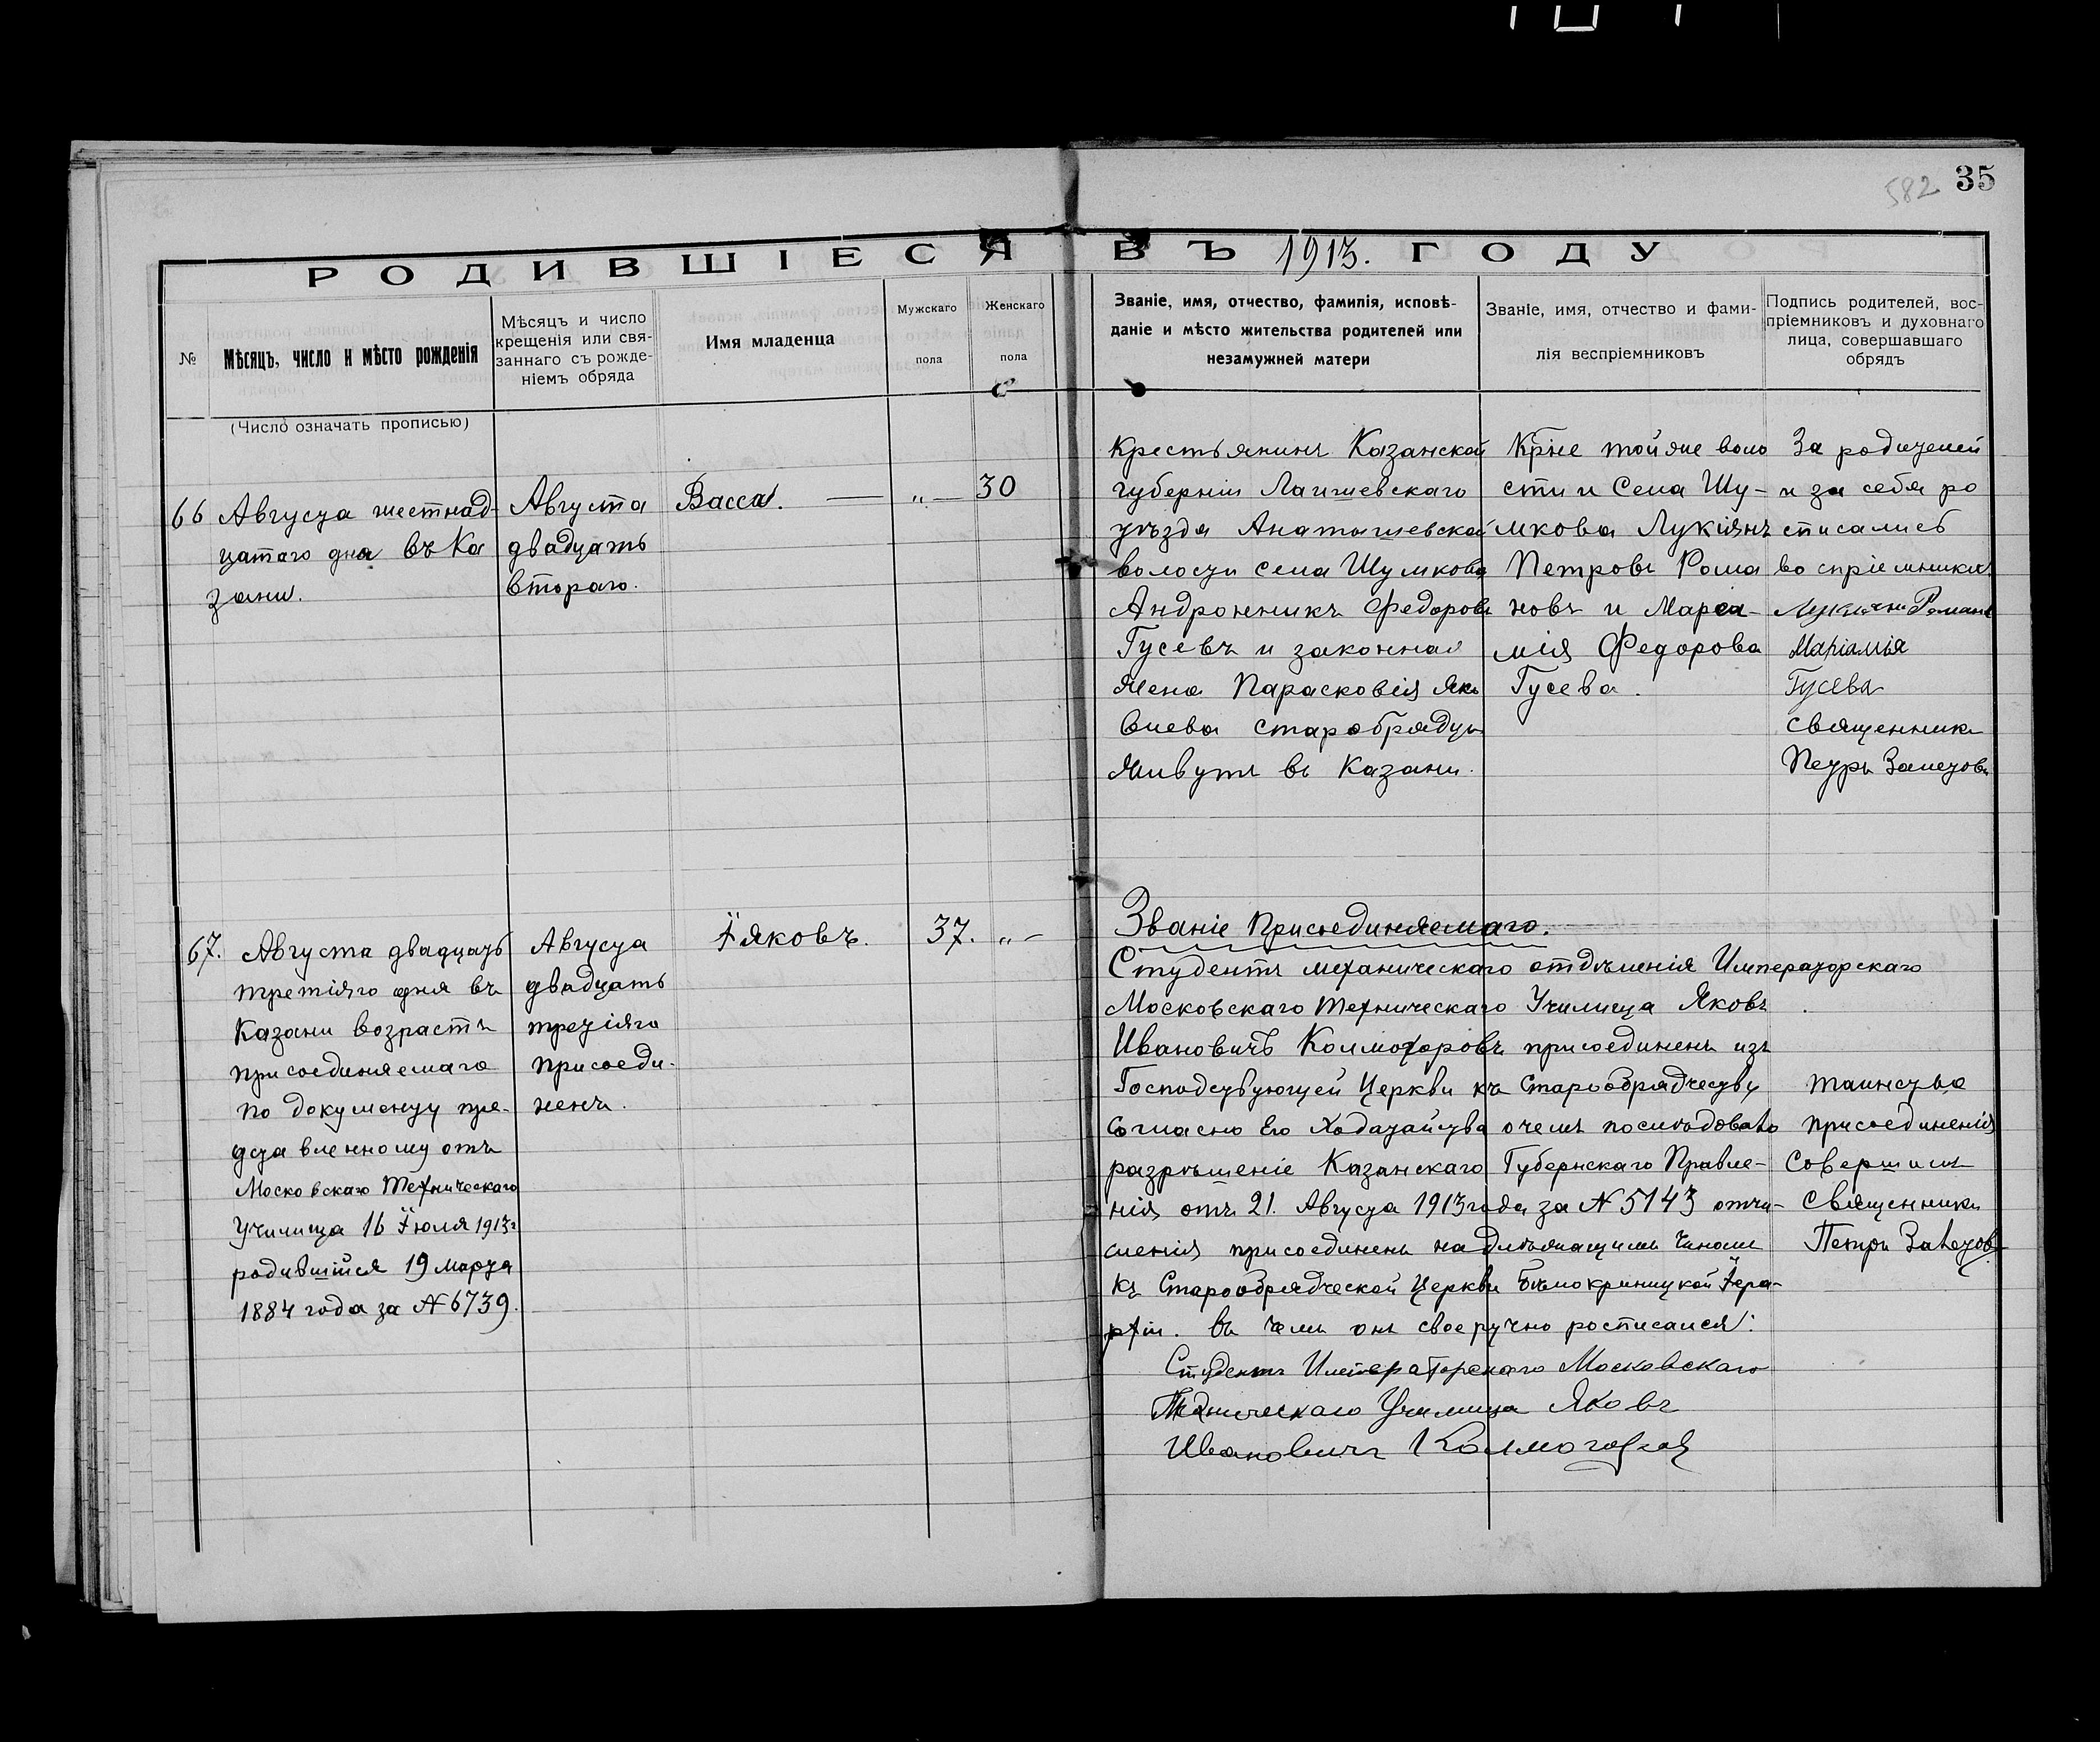 582 35
РОДИВШІЕСЯ ВЪ 1913. ГОДУ
№
Мѣсяцъ, число и мѣсто рожденія
(Число означать прописью)
Мѣсяцъ и число
крещенія или свя-
заннаго съ рожде-
ніемъ обряда
Имя младенца
Мужскаго
пола
Женскаго
пола
Званіе, имя, отчество, фамилія, исповѣ-
даніе и мѣсто жительства родителей или
незамужней матери
Званіе, имя, отчество и фами-
лія веспріемниковъ
Подпись родителей, вос-
пріемниковъ и духовнаго
лица, совершавшаго
обрядъ
66
Августа шестнад-
цатаго дня въ Ка
зани.
Августа
двадцать
втораго.
Васса.
„
30
Крестьянинъ Казанской
губерніи Лаишевскаго
уѣзда Анатышевской
волости села Шумкова
Андронникъ Федоровъ
Гусевъ и законная
Жена Парасковія Яко
влева старобрядцы
Живутъ въ Казани.
Кр҃не той же воло
сти и Села Шу-
мкова Лукіянъ
Петровъ Рома
новъ и Маріа-
мія Федорова
Гусева.
За родителей
и за себя ро
списались
воспріемники
Лукіянъ Романовъ
Маріамія
Гусева
священникъ
Петръ Залетовъ
67.
Августа двадцать
третіяго дня въ
Казани возрастъ
присоединяемаго
по документу пре-
дставленному отъ
Московскаго Техническаго
Училища 16 Іюля 1913г
родившійся 19 марта
1884 года за № 6739.
Августа
двадцать
третіяго
присоеди-
ненъ.
Іяковъ.
37.
„
Званіе Присоединяемаго.
Студентъ механическаго отдѣленія Императорскаго
Московскаго Техническаго Училища Яковъ
Ивановичъ Колмогоровъ присоединенъ изъ
Господствующей Церкви къ Старообрядчеству
согласно Его Ходатайства о чемъ послѣдовало
разрѣшеніе Казанскаго Губернскаго Правле-
нія отъ 21. Августа 1913 года за № 5143 отчи-
сленія присоединенъ надлѣжащимъ Чиномъ
къ Старообрядческой Церкви Бѣлокриницкой Іера-
рхіи. въ чемъ онъ своеручно росписался:
Студентъ Императорскаго Московскаго
Техническаго Училища Яковъ
Ивановичъ Колмогоровъ
Таинство
присоединенія
Совершилъ
Священникъ
Петръ Залетовъ